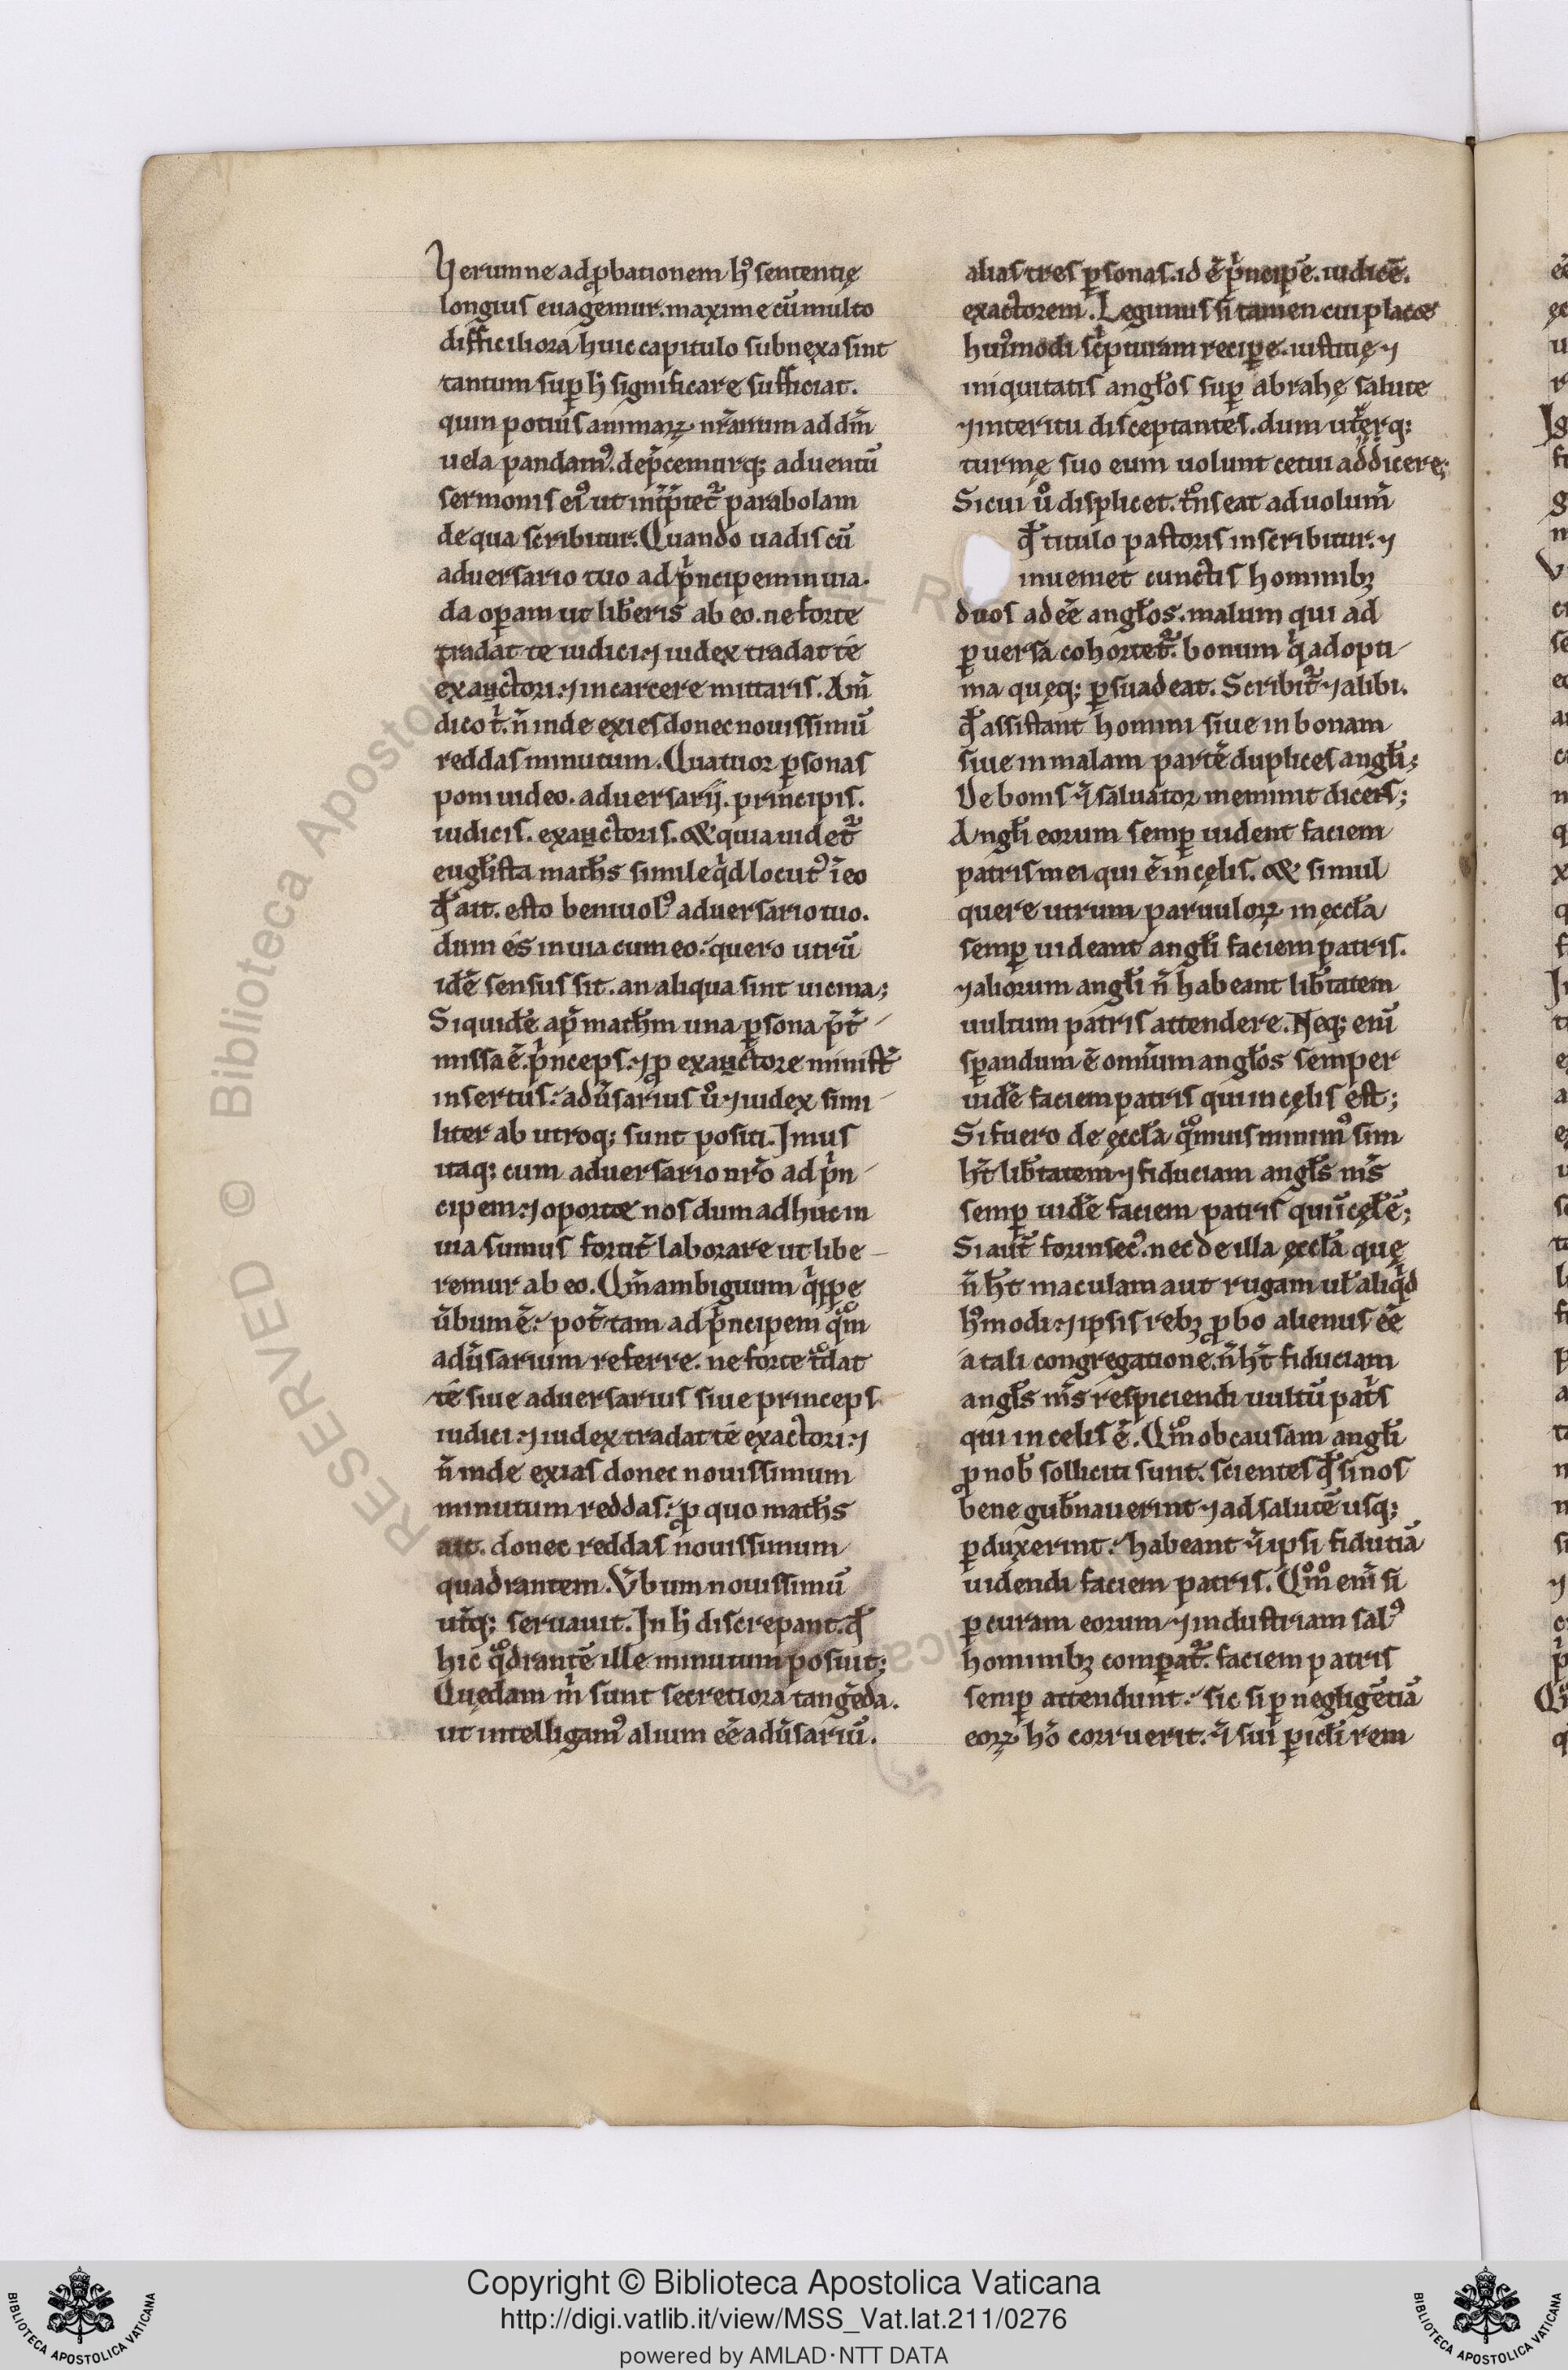 Uerum ne ad ꝓbationem hꝰ sententię
longius euagemur. maxime cū multo
difficiliora huic capitulo subnexa sint
tantum suꝑ h̄ significare sufficiat.
quin potius animaꝝ nr̄arum ad dm̄
uela pandamꝰ. dep̄cemurq; aduentū
sermonis eiꝰ ut int̄p̄tet᷑ parabolam
de qua scribitur. Quando uadis cū
aduersario tuo ad pͥncipem in uia.
da oꝑam ut lib̄eris ab eo. ne forte
tradat te iudici. ⁊ iudex tradat te
exauctori. ⁊ in carcere mittaris. Am̄
dico tͥ. n̄ inde exies donec nouissimū
reddas minutum. Quatuor ꝑsonas
poni uideo. aduersarij. principis.
iudicis. exauctoris. & quia uidet᷑
eugłista math̄s simile qͥd locutꝰ ī eo
qđ ait. esto beniuolꝰ aduersario tuo.
dum es in uia cum eo. quero utrū
idē sensus sit. an aliqua sint uicina;
Siquidē ap̄ math̄m una ꝑsona p̄t̄
missa ē. pͥnceps. ⁊ ꝓ exauctore minist̄
insertus. adūsarius uͦ ⁊ iudex simi
liter ab utroq; sunt positi. Imus
itaq; cum aduersario nr̄o ad pͥn
cipem. ⁊ oportet nos dum adhuc in
uia sumus fortit̄ laborare ut libe
remur ab eo. Qm̄ ambiguum qͥppe
ūbum ē. pot̄ tam ad pͥncipem qͦm
adūsarium referre. ne forte tͣdat
te siue aduersarius siue princeps
iudici. ⁊ iudex tradat te exactori. ⁊
n̄ inde exias donec nouissimum
minutum reddas. ꝓ quo math̄s
ait. donec reddas nouissimum
quadrantem. V̄bum nouissimū
ut̄q; seruauit. In h̄ discrepant. qđ
hic qͣdrantē ille minutum posuit;
Quędam m̄ sunt secretiora tangēda.
ut intelligamꝰ alium eē adūsariū.
alias tres ꝑsonas. id ē pͥncipē. iudicē.
exactorem. Legimus si tamen cui placet
huiꝰmodi scͥpturam reciꝑe. iustitię ⁊
iniquitatis angłos suꝑ abrahę salute
⁊ interitu disceptantes. dum ut̄erq;
turmę suo eum uolunt cetui addicere;
Sicui uͦ displicet. tͣnseat ad uolum̄
qđ titulo pastoris inscribitur. ⁊
inueniet cunctis hominibꝫ
duos adeē angłos. malum qui ad
ꝑuersa cohortet᷑. bonum qͥ ad opti
ma quęq; ꝑsuadeat. Scribit᷑ ⁊ alibi.
qđ assistant homini siue in bonam
siue in malam partē duplices angłi;
De bonis ⁊ saluator meminit dicens;
Angłi eorum semꝑ uident faciem
patris mei qui ē in cęlis. & simul
quere utrum paruuloꝝ in ęccła
semꝑ uideant angłi faciem patris.
⁊ aliorum angłi n̄ habeant lib̄tatem
uultum patris attendere. Neq; enī
sꝑandum ē omnium angłos semper
uidē faciem patris qui in cęlis est;
Si fuero de ęccła qͣmuis minimꝰ sim
ht̄ lib̄tatem ⁊ fiduciam angłs ms̄
semꝑ uidē faciem patris qui ī cęł ē;
Si aut̄ forinsecꝰ. nec de illa ęccła quę
n̄ ht̄ maculam aut rugam uł aliqͥd
hꝰmodi. ⁊ ipsis rebꝫ ꝓbo alienus eē
a tali congregatione. n̄ ht̄ fiduciam
angłs ms̄ respiciendi uultū patͥs
qui in celis ē. Qͣm ob causam angłi
ꝓ nob̄ solliciti sunt. scientes qđ si nos
bene gub̄nauerint ⁊ ad salutē usq;
ꝑduxerint. habeant ⁊ ipsi fidutiā
uidendi faciem patris. Qͦmͦ enī si
ꝑ curam eorum ⁊ industriam salꝰ
hominibꝫ comparat᷑. faciem patris
semꝑ attendunt. sic si ꝑ negligētiā
eoꝝ hō corruerit. ⁊ sui ꝑicłi rem
Copyright © Biblioteca Apostolica Vaticana
http://digi.vatlib.it/view/MSS_Vat.lat.211/0276
powered by AMLAD·NTT DATA